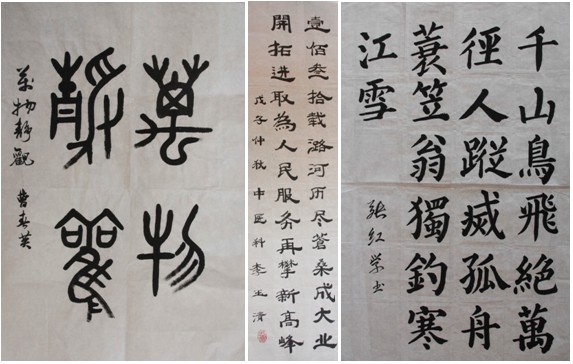 萬物
靜觀
萬物靜觀 曹春英
壹佰叁拾载潞河历尽蒼桑成大业
開拓进取為人民服务再攀新高峰
戊子仲秋中医科李玉清
千山鳥飛絕萬
徑人蹤滅孤舟
蓑笠翁獨釣寒
江雪
张红荣书